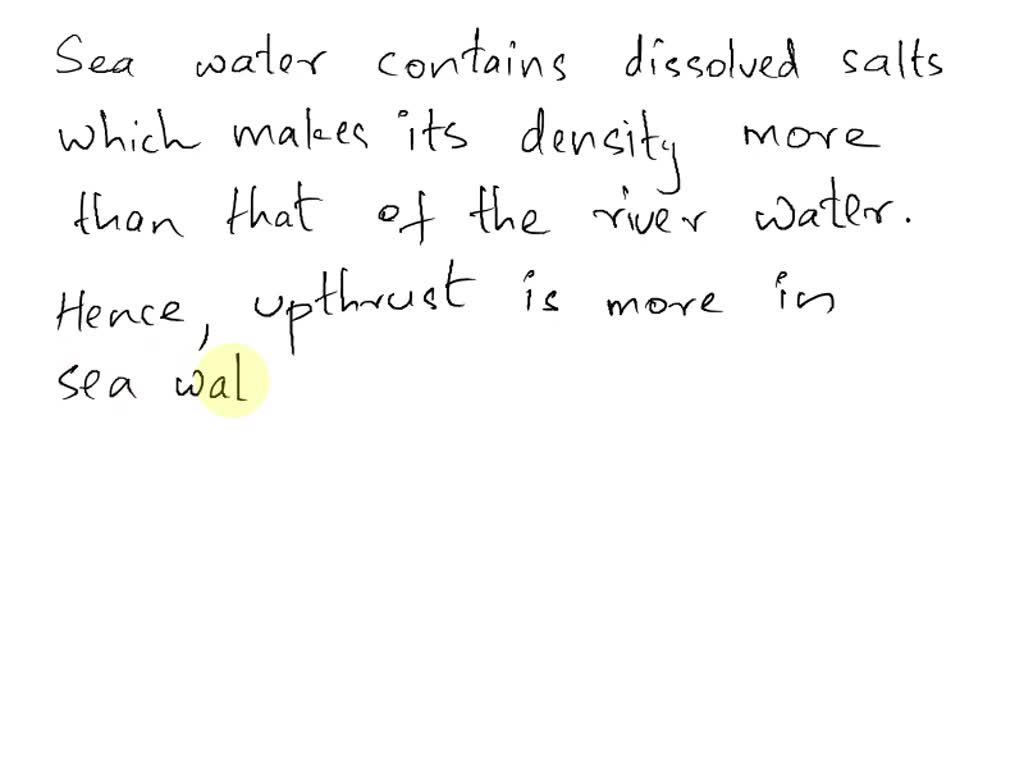 Sea water contains dissolved salts
which makes its density more
than that of the river water.
Hence, upthrust is more in
sea wal